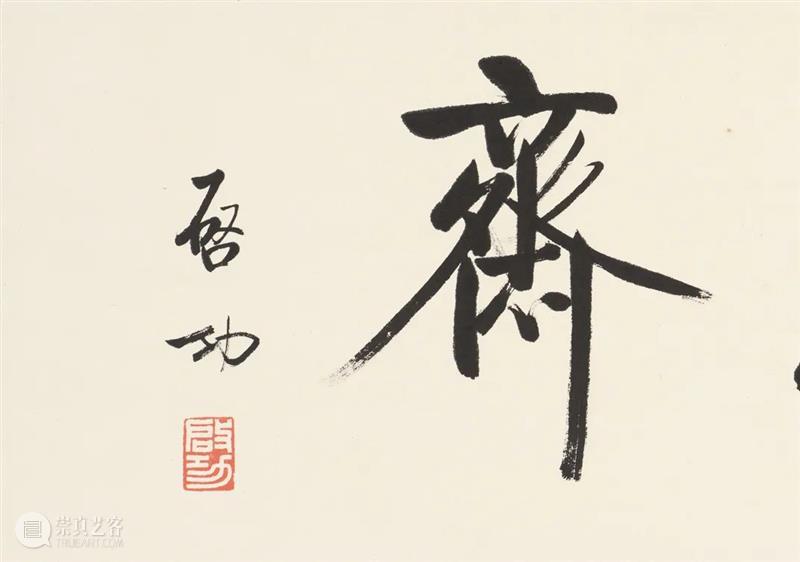 齋
啓功
啟功
崇真艺客
TRUEART.COM